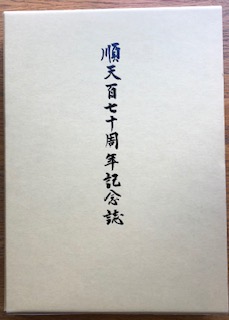 順天百七十周年記念誌